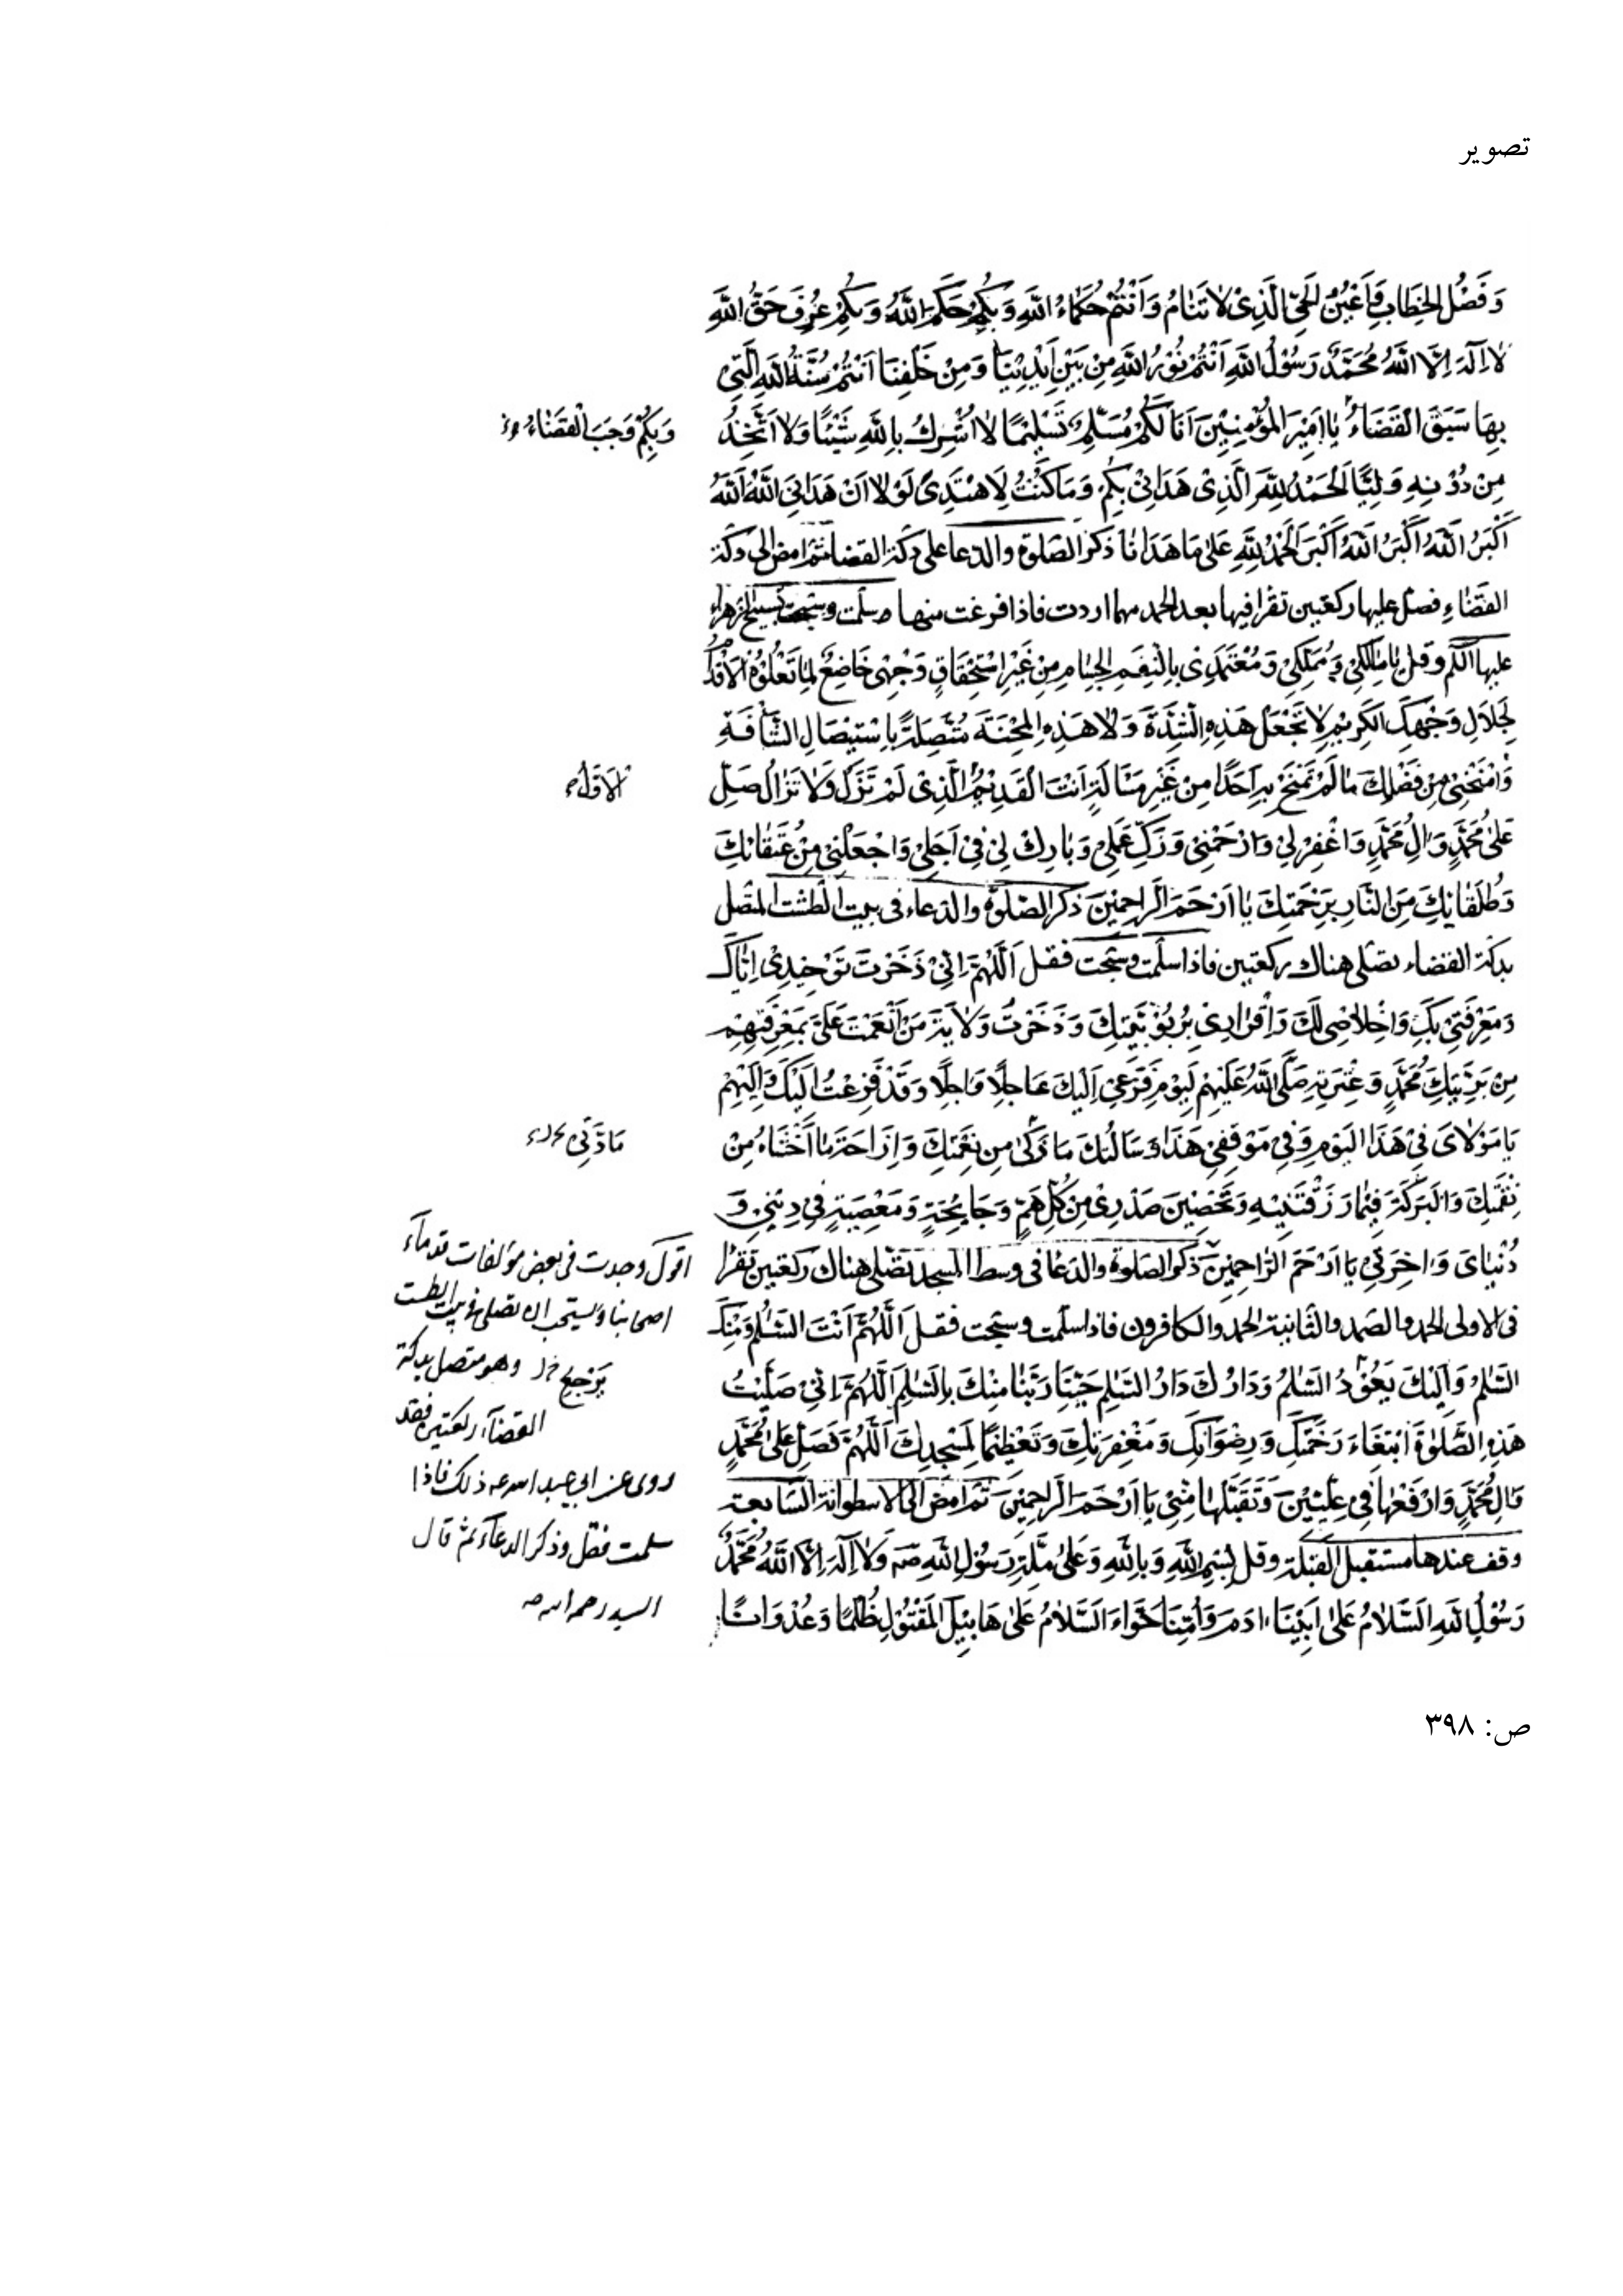 تصویر
وَفَصْلُ الخِطَابِ وَاَعْيُنُ الحَىِّ الَّذِىْ لَا تَنَامُ وَاَنْتُمْ حُكَمَاءُ اللّٰهِ وَبِكُمْ حَكَمَ اللّٰهُ وَبِكُمْ عُرِفَ حَقُّ اللّٰهِ
لَا اِلٰهَ اِلَّا اللّٰهُ مُحَمَّدٌ رَسُوْلُ اللّٰهِ اَنْتُمْ نُوْرُ اللّٰهِ مِنْ بَيْنِ اَيْدِيْنَا وَمِنْ خَلْفِنَا اَنْتُمْ سُنَّةُ اللّٰهِ الَّتِىْ
بِهَا سَبَقَ القَضَاءُ يَا اَمِيْرَ المُؤْمِنِيْنَ اَنَا لَكُمْ مُسَلِّمٌ تَسْلِيْمًا لَا اُشْرِكُ بِاللّٰهِ شَيْئًا وَلَا اَتَّخِذُ
وَبِكُمْ وَجَبَ القَضَاءُ
مِنْ دُوْنِهِ وَلِيًّا اَلحَمْدُ لِلّٰهِ الَّذِىْ هَدَانِىْ بِكُمْ وَمَا كُنْتُ لِاَهْتَدِىَ لَوْلَا اَنْ هَدَانِىَ اللّٰهُ اَللّٰهُ
اَكْبَرُ اَللّٰهُ اَكْبَرُ اَللّٰهُ اَكْبَرُ اَلحَمْدُ لِلّٰهِ عَلىٰ مَا هَدَانَا ذكر الصلوة والدعا على دكة القضا ثم امض الى دكة
القضاء فصل عليها ركعتين تقرا فيها بعد الحمد مهما اردت فاذا فرغت منها سلمت وسبحت تسبيح الزهراء
عليها السلم وقل يَا مَالِكِىْ وَمُمَلِّكِىْ وَمُعْتَمِدِىْ بِالنِّعَمِ الجِسَامِ مِنْ غَيْرِ اسْتِحْقَاقٍ وَجْهِىْ خَاضِعٌ لِمَا تَعْلُوْهُ الاَقْدَامُ
لِجَلَالِ وَجْهِكَ الكَرِيْمِ لَا تَجْعَلْ هَذِهِ الشِّدَّةَ وَلَا هَذِهِ المِحْنَةَ مُتَّصِلَةً بِاسْتِيْصَالِ الشَّافَةِ
وَامْنَحْنِىْ مِنْ فَضْلِكَ مَا لَمْ تَمْنَحْ بِهِ اَحَدًا مِنْ غَيْرِ مَسْاَلَةٍ اَنْتَ القَدِيْمُ الَّذِىْ لَمْ تَزَلْ وَلَا تَزَالُ صَلِّ
عَلىٰ مُحَمَّدٍ وَآلِ مُحَمَّدٍ وَاغْفِرْ لِىْ وَارْحَمْنِىْ وَزَكِّ عَمَلِىْ وَبَارِكْ لِىْ فِىْ اَجَلِىْ وَاجْعَلْنِىْ مِنْ عُتَقَائِكَ
وَطُلَقَائِكَ مِنَ النَّارِ بِرَحْمَتِكَ يَا اَرْحَمَ الرَّاحِمِيْنَ ذكر الصلوة والدعاء فى بيت الطشت المتصل
بدكة القضاء تصلى هناك ركعتين فاذا سلمت وسبحت فقل اَللّٰهُمَّ اِنِّىْ ذَخَرْتُ تَوْحِيْدِىْ اِيَّاكَ
وَمَعْرِفَتِىْ بِكَ وَاِخْلَاصِىْ لَكَ وَاِقْرَارِىْ بِرُبُوْبِيَّتِكَ وَذَخَرْتُ وَلَايَةَ مَنْ اَنْعَمْتَ عَلَىَّ بِمَعْرِفَتِهِمْ
مِنْ بَرِيَّتِكَ مُحَمَّدٍ وَعِتْرَتِهِ صَلَّى اللّٰهُ عَلَيْهِمْ لِيَوْمِ فَزَعِىْ اِلَيْكَ عَاجِلًا وَاٰجِلًا وَقَدْ فَزِعْتُ اِلَيْكَ وَاِلَيْهِمْ
يَا مَوْلَاىَ فِىْ هَذَا اليَوْمِ وَفِىْ مَوْقِفِىْ هَذَا وَسَاَلْتُكَ مَا زَكىٰ مِنْ نِعْمَتِكَ وَاِزَاحَةَ مَا اَخْشَاهُ مِنْ
نِقْمَتِكَ وَالبَرَكَةَ فِيْمَا رَزَقْتَنِيْهِ وَتَحْصِيْنَ صَدْرِىْ مِنْ كُلِّ هَمٍّ وَجَائِحَةٍ وَمَعْصِيَةٍ فِىْ دِيْنِىْ وَ
دُنْيَاىَ وَاٰخِرَتِىْ يَا اَرْحَمَ الرَّاحِمِيْنَ ذكر الصلوة والدعا فى وسط المسجد تصلى هناك ركعتين تقرا
فى الاولى الحمد والصمد والثانية الحمد والكافرون فاذا سلمت وسبحت فقل اَللّٰهُمَّ اَنْتَ السَّلٰمُ وَمِنْكَ
السَّلٰمُ وَاِلَيْكَ يَعُوْدُ السَّلٰمُ وَدَارُكَ دَارُ السَّلٰمِ حَيِّنَا رَبَّنَا مِنْكَ بِالسَّلٰمِ اَللّٰهُمَّ اِنِّىْ صَلَّيْتُ
هَذِهِ الصَّلٰوةَ ابْتِغَاءَ رَحْمَتِكَ وَرِضْوَانِكَ وَمَغْفِرَتِكَ وَتَعْظِيْمًا لِمَسْجِدِكَ اَللّٰهُمَّ فَصَلِّ عَلىٰ مُحَمَّدٍ
وَآلِ مُحَمَّدٍ وَارْفَعْهَا فِىْ عِلِّيِّيْنَ وَتَقَبَّلْهَا مِنِّىْ يَا اَرْحَمَ الرَّاحِمِيْنَ ثم امض الى الاسطوانة السابعة
وقف عندها مستقبل القبلة وقل بِسْمِ اللّٰهِ وَبِاللّٰهِ وَعَلىٰ مِلَّةِ رَسُوْلِ اللّٰهِ ص وَلَا اِلٰهَ اِلَّا اللّٰهُ مُحَمَّدٌ
رَسُوْلُ اللّٰهِ اَلسَّلَامُ عَلىٰ اَبِيْنَا اٰدَمَ وَاُمِّنَا حَوَّاءَ اَلسَّلَامُ عَلىٰ هَابِيْلَ المَقْتُوْلِ ظُلْمًا وَعُدْوَانًا
اقول وجدت فى بعض مؤلفات قدماء
اصحابنا ويستحب ان تصلى فى بيت الطست
يَرْجِعُ وهو متصل بدكة
القضاء ركعتين فقد
روى عن ابى عبد الله ع ذلك فاذا
سلمت فقل وذكر الدعاء ثم قال
السيد رحمه الله
ص: ٣٩٨